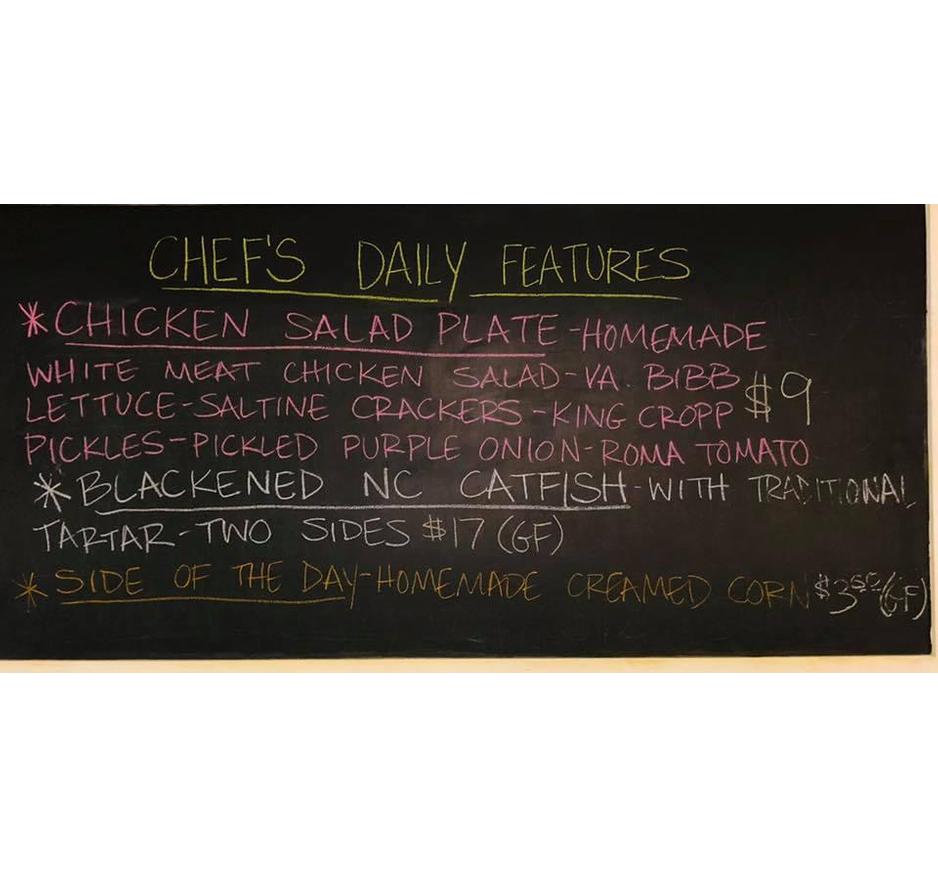 CHEF'S DAILY FEATURES
*CHICKEN SALAD PLATE-HOMEMADE
WHITE MEAT CHICKEN SALAD-VA. BIBB
LETTUCE-SALTINE CRACKERS-KING CROPP $9
PICKLES-PICKLED PURPLE ONION-ROMA TOMATO
*BLACKENED NC CATFISH-WITH TRADITIONAL
TARTAR-TWO SIDES $17 (GF)
*SIDE OF THE DAY-HOMEMADE CREAMED CORN $3.50 (GF)